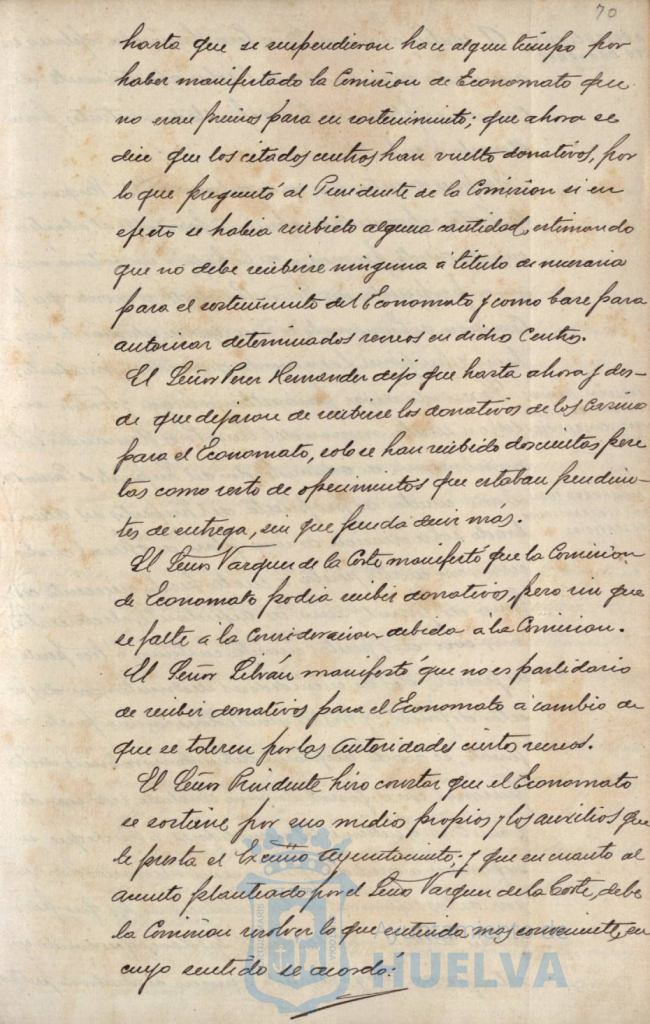 70
hasta que se suspendieron hace algun tiempo por
haber manifestado la Comision de Economato que
no eran precisos para su sostenimiento; que ahora se
dice que los citados centros han vuelto donativos, por
lo que preguntó al Presidente de la Comision si en
efecto se habia recibido alguna cantidad, estimando
que no debe recibirse ninguna á titulo de necesaria
para el sostenimiento del Economato y como base para
autorizar determinados recreos en dichos Centros.
El Señor Perez Hernandez dijo que hasta ahora y des-
de que dejaron de recibirse los donativos de los Casinos
para el Economato, solo se han recibido doscientas pese
tas como resto de ofrecimientos que estaban pendien-
tes de entrega, sin que pueda decir más.
El Señor Vazquez de la Corte manifestó que la Comision
de Economato podia recibir donativos, pero sin que
se falte á la consideracion debida á la Comision.
El Señor Libván manifestó que no es partidario
de recibir donativos para el Economato á cambio de
que se toleren por las autoridades ciertos recreos.
El Señor Presidente hizo constar que el Economato
se sostiene por sus medios propios y los auxilios que
le presta el Excmo Ayuntamiento; y que en cuanto al
asunto planteado por el Señor Vazquez de la Corte, debe
la Comision resolver lo que entienda mas conveniente, en
cuyo sentido se acordó.
HUELVA